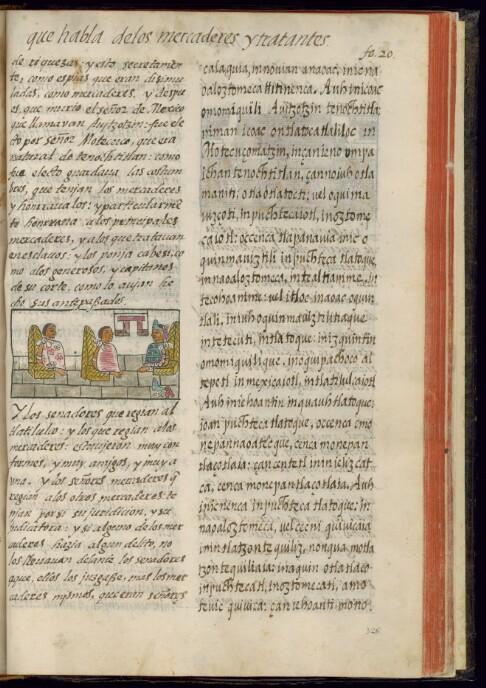 que habla delos mercaderes y tratantes.
fo. 20.
de riquezas: y esto secretamen
te, como espias que eran disimu
ladas, como mercaderes. y despu
es, que murio el señor de Mexico
que llamavan Auitzotzin: fue ele
cto por señor Motecuço, que era
natural de tenochtitlan: como
fue electo guardaua las costum
bres, que tenjan los mercaderes
y honrraua los: y particularme
te honrraua a los principales
mercaderes, y a los que tratauan
en esclauos: y los ponja cabe si, co
mo a los generosos, y capitanes
de su corte, como lo aujan he
cho sus antepasados.
Y los senadores que regian al
tlatilulco: y los que regian a los
mercaderes: estoujeron muy con
formes, y muy amigos, y muy a
vna. y los señores mercaderes q
regian a los otros mercaderes: te
njan por si su juridicion, y su
judicatura: y si alguno de los mer
caderes hazia algun delito, no
los lleuauan delante los senadores
a que, ellos los juzgase, mas los mer
caderes mjsmos, que eran señores
calaquia, in novian anaoac, in iena
oaloztomeca titinenca. Auh in icoac
omomiquili Auitzotzin tenochtitla:
niman icoac ontlatocatlaliloc in
Motecuçomatzin, inçan ieno vmpa
ichan tenochtitlan, çan no iuh otla
maniti: otlaotlatocti: vel oquima
vizcoti, in puchtecaiotl, in oztome
caiotl: occenca tlapanauia inic o
quinmaviztili in puchteca tlatoque,
in naoaloztomeca, in tealtianime, in
tecohoanime: vel itloc inaoac oquin
tlali, in iuhquinmauiztilitiaque
in tetecuti, in tlatoque: in izquintin
omomiquilique, in oquipachoco al
tepetl in mexicaiotl, in tlatilulcaiotl
Auh in ichoantin in quauhtlatoque;
ioan puchteca tlatoque, occenca çmo
nepannaoatéque, cenca monepan
tlaçotlaia: çan centetl in inielizcat
ca, cenca monepantlaçotlaia, Auh
in ienenca in puchteca tlatoque: in
naoaloztomeca, vel ceceni quiuicaia
in intlatzontequiliz, nonqua motla
tzontequiliaia: in aquin otlatlaco
in puchtecatl, in oztomecatl, amo
tevic quiuica: çan iehoanti mono
326